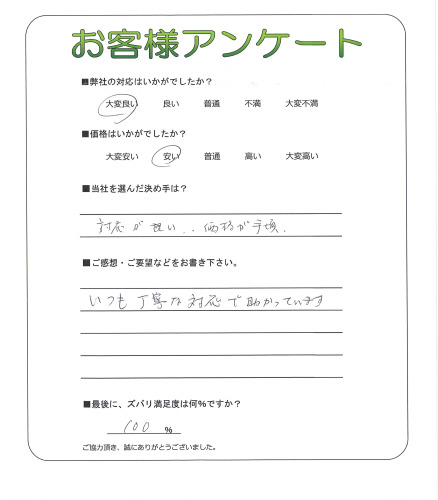 お客様アンケート
■弊社の対応はいかがでしたか?
大変良い 良い 普通 不満 大変不満
■価格はいかがでしたか?
大変安い 安い 普通 高い 大変高い
■当社を選んだ決め手は?
対応が良い、価格が手頃.
■ご感想・ご要望などをお書き下さい。
いつも丁寧な対応で助かっています
■最後に、ズバリ満足度は何%ですか?
100 %
ご協力頂き、誠にありがとうございました。